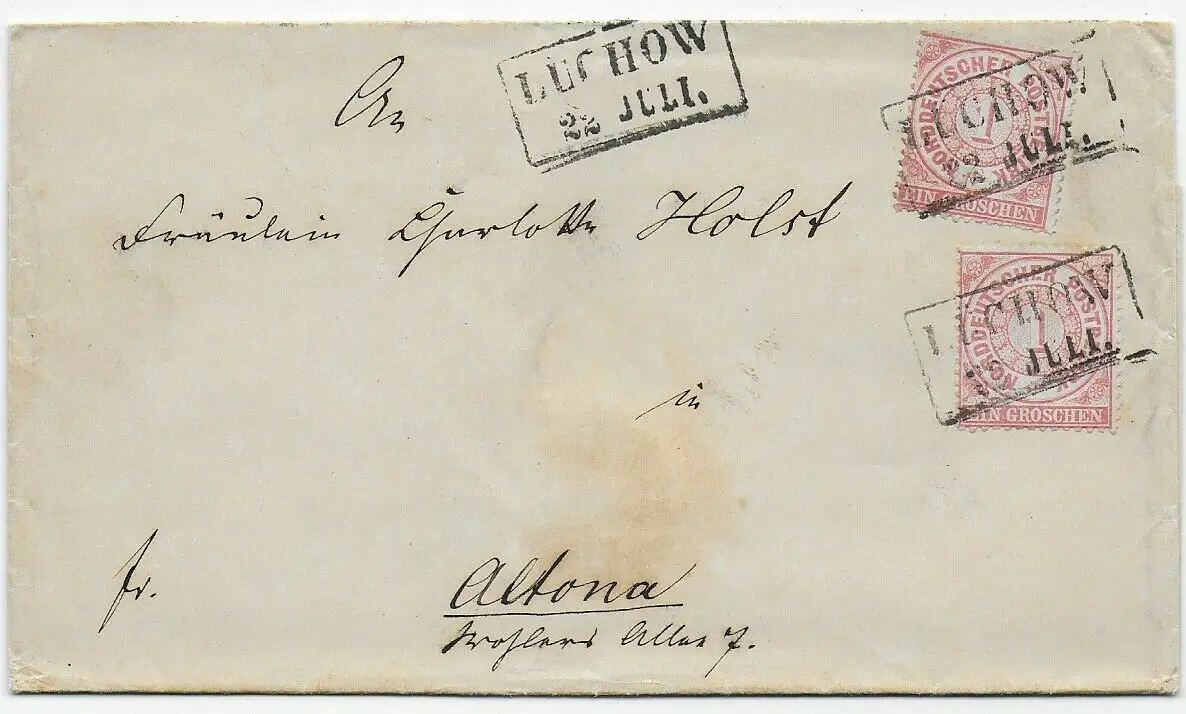 LUCHOW
22 JULI.
An
Fräulein Charlotte Holst
in
fr.
Altona
Wohlers Allee 7.
NORDDEUTSCHER POSTBEZIRK
1
EIN GROSCHEN
LUCHOW
22 JULI.
NORDDEUTSCHER POSTBEZIRK
1
EIN GROSCHEN
LUCHOW
JULI.